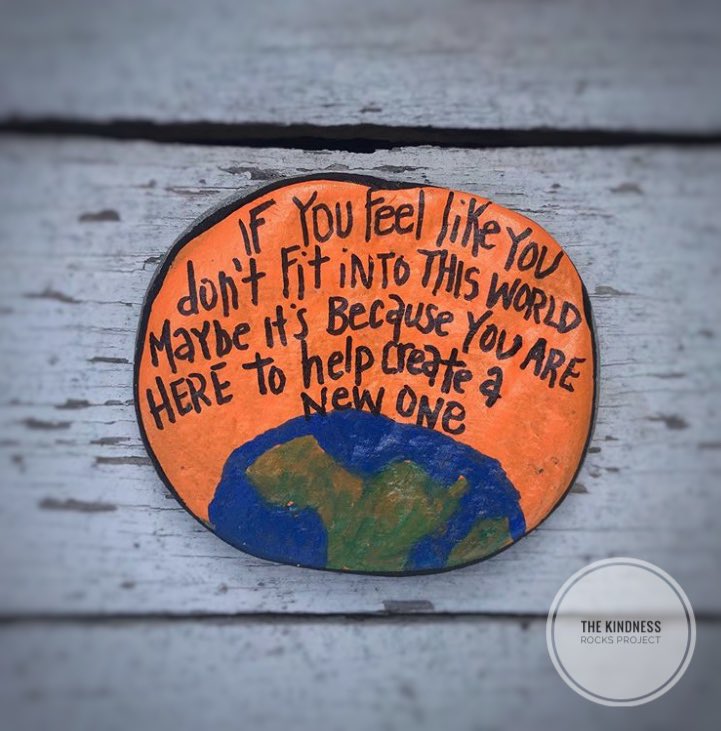 IF YOU Feel like YOU
don't Fit iNTO THIS WORLD
MayBe It's Because YOU ARE
HERE To help create a
New ONe
THE KINDNESS
ROCKS PROJECT